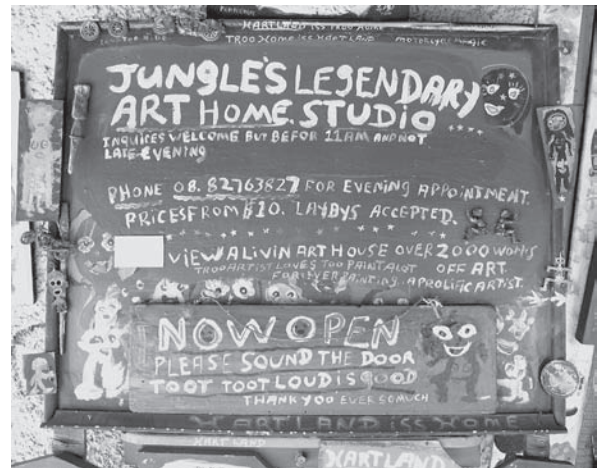 HARTLAND ISS TROO HOME
TROO HOME ISS HARTLAND MOTORCYCLE MAGIC
JUNGLE'S LEGENDARY
ART HOME STUDIO
INQUIRES WELCOME BUT BEFOR 11AM AND NOT
LATE EVENING
PHONE 08.82763827 FOR EVENING APPOINTMENT.
PRICES FROM $10. LAYBYS ACCEPTED.
VIEW A LIVIN ART HOUSE OVER 2000 WORKS
TROO ARTIST LOVES TOO PAINT ALOT OFF ART
FOREVER PAINTING. A PROLIFIC ARTIST.
NOW OPEN
PLEASE SOUND THE DOOR
TOOT TOOT LOUD IS GOOD
THANK YOO EVER SO MUCH
HARTLAND ISS HOME
HARTLAND
HARTLAND